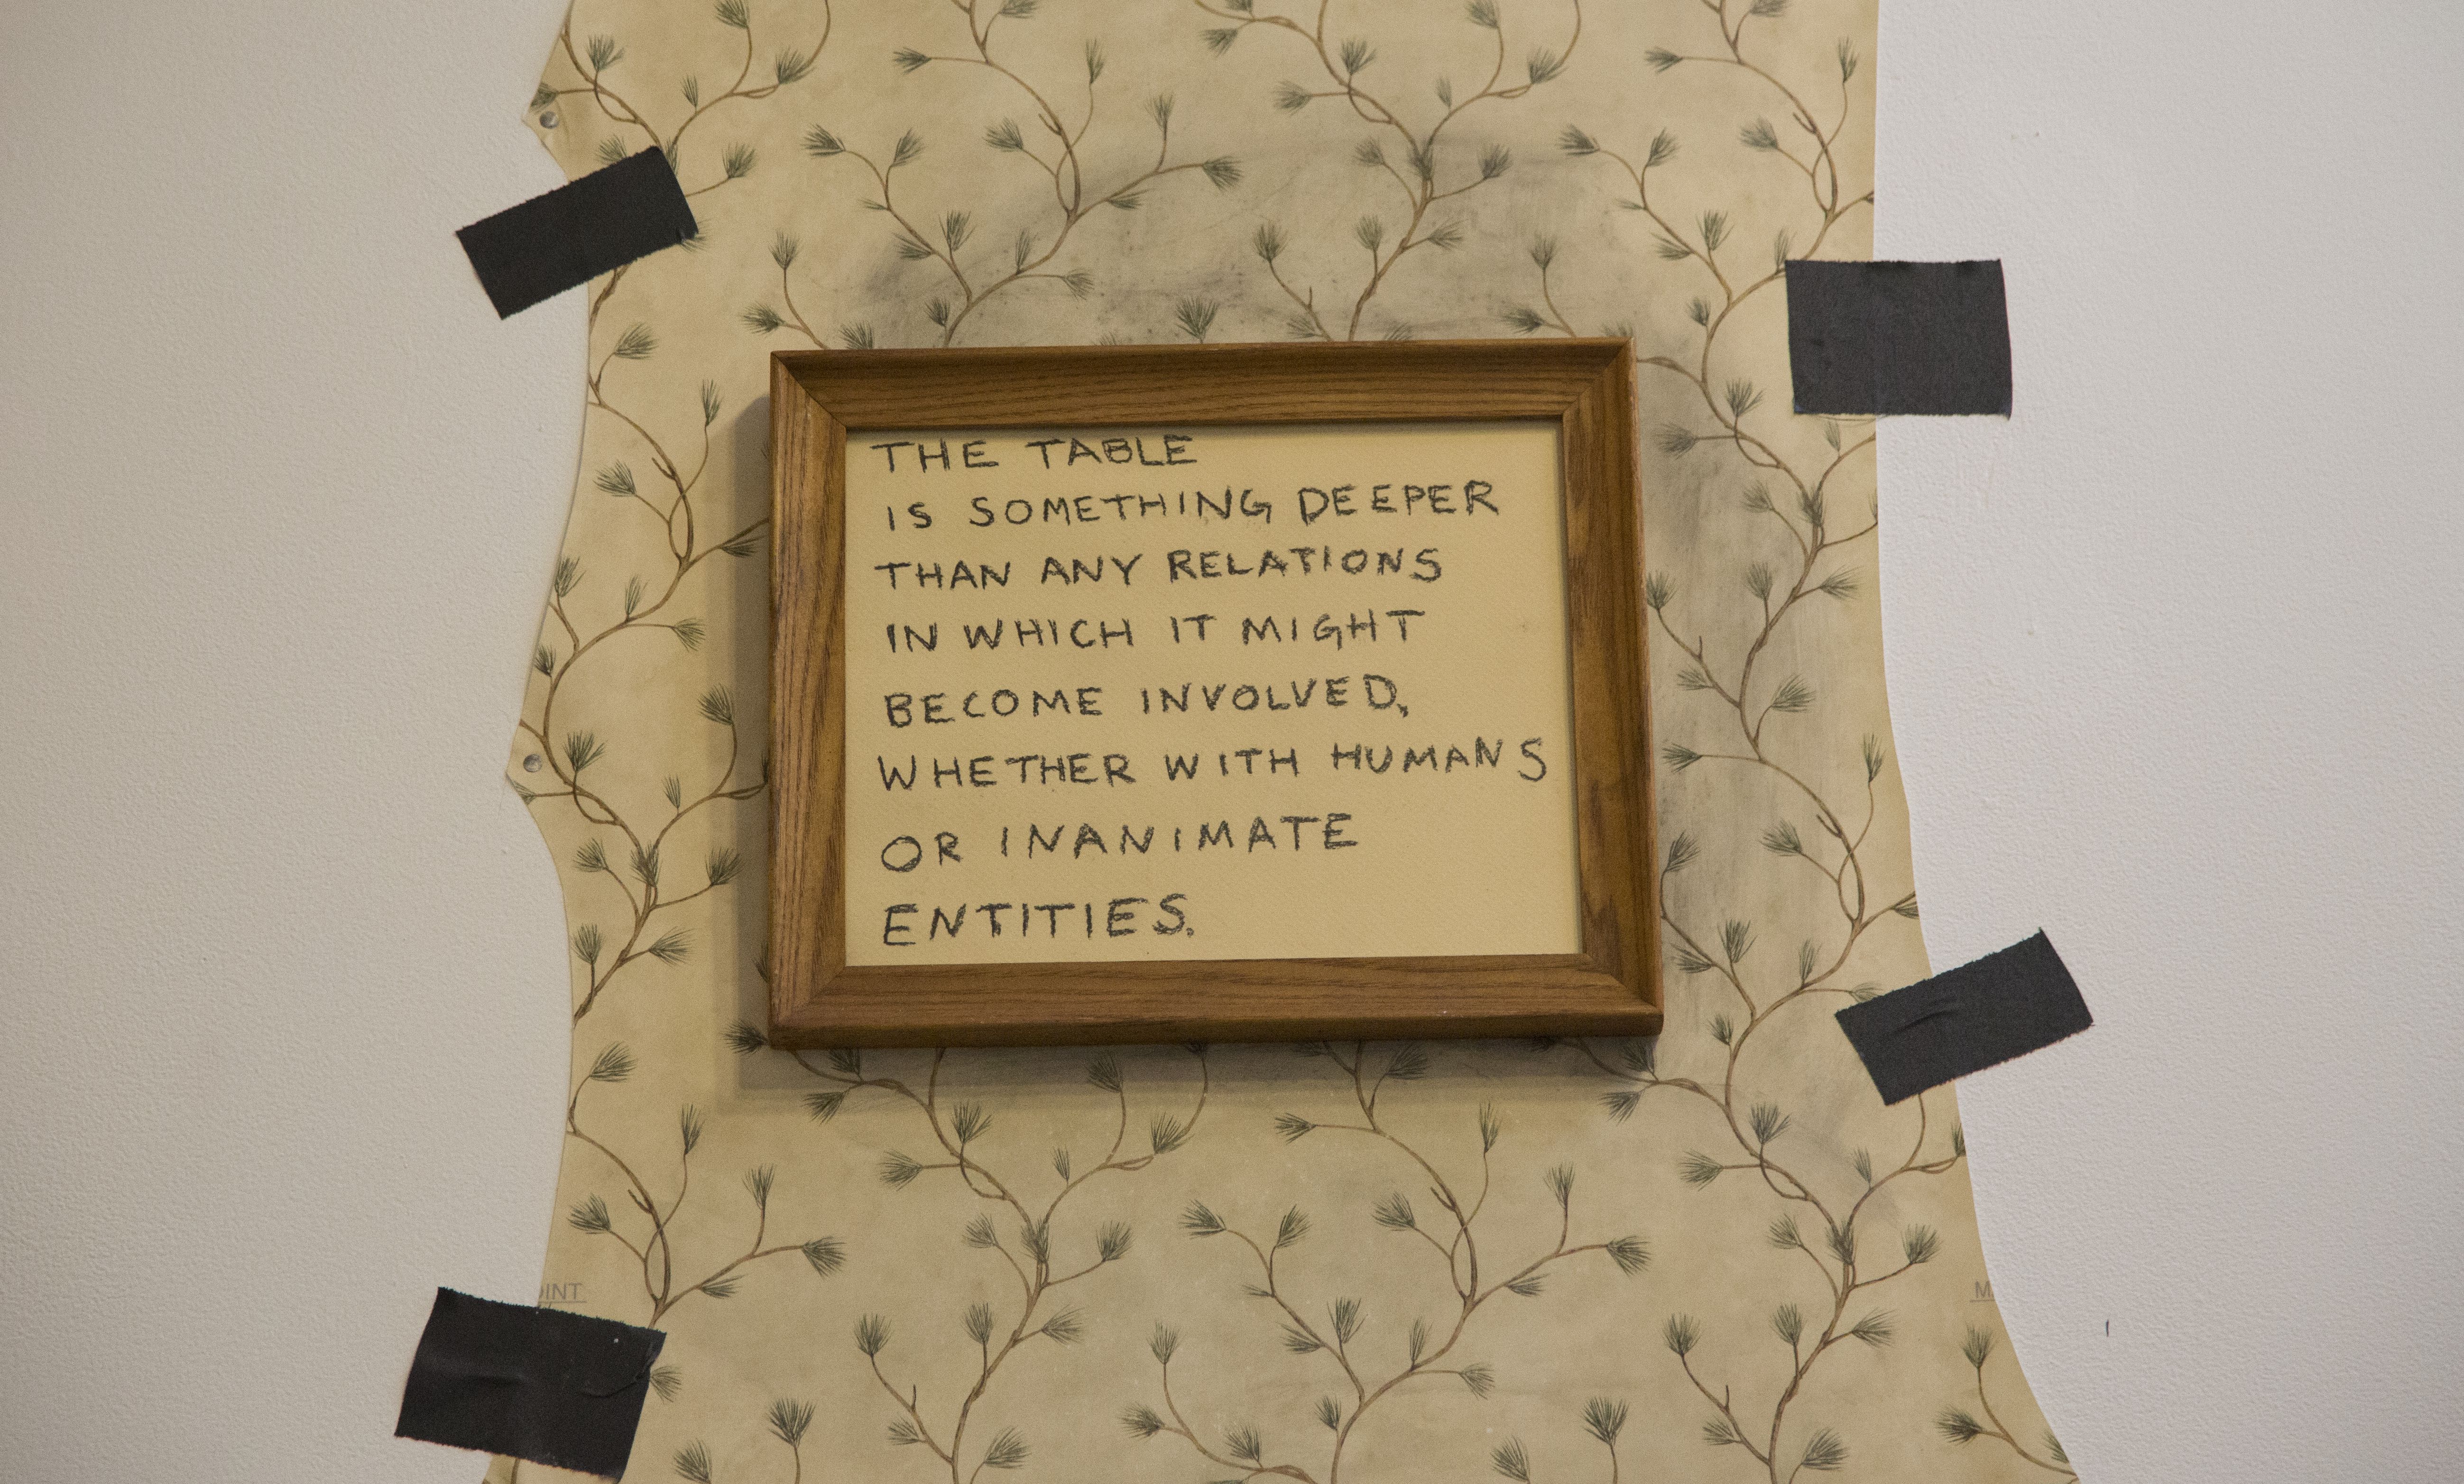 THE TABLE
IS SOMETHING DEEPER
THAN ANY RELATIONS
IN WHICH IT MIGHT
BECOME INVOLVED,
WHETHER WITH HUMANS
OR INANIMATE
ENTITIES.